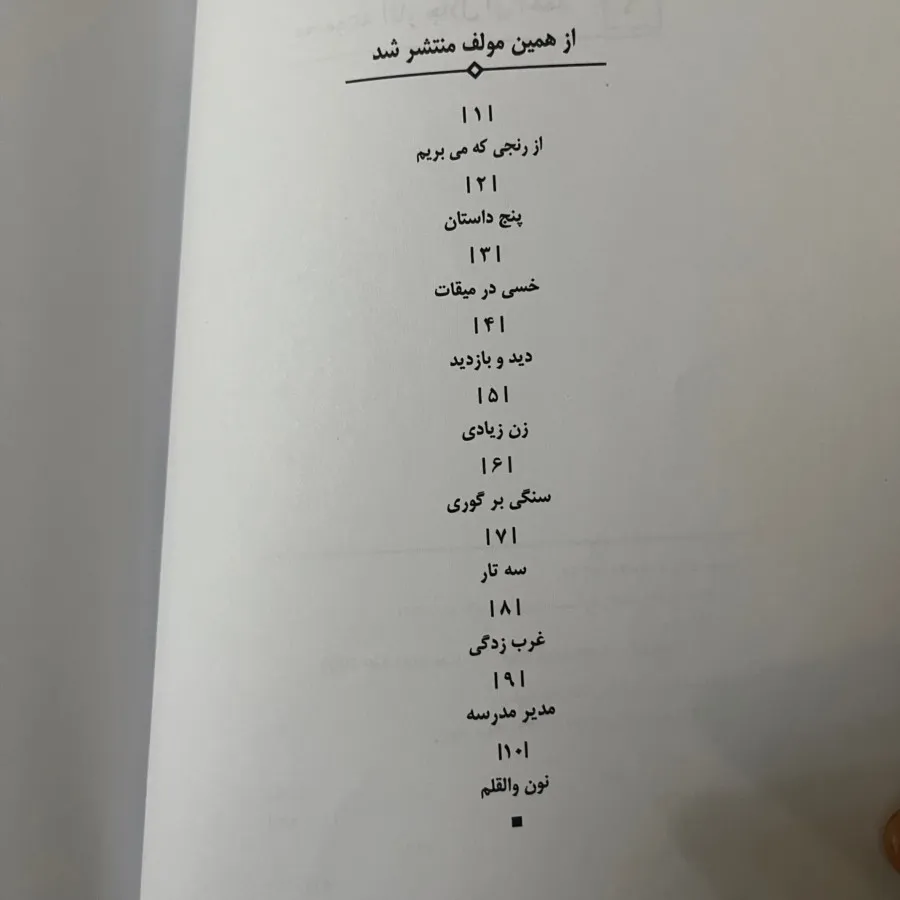 از همین مولف منتشر شد
|۱|
از رنجی که می بریم
|۲|
پنج داستان
|۳|
خسی در میقات
|۴|
دید و بازدید
|۵|
زن زیادی
|۶|
سنگی بر گوری
|۷|
سه تار
|۸|
غرب زدگی
|۹|
مدیر مدرسه
|۱۰|
نون والقلم